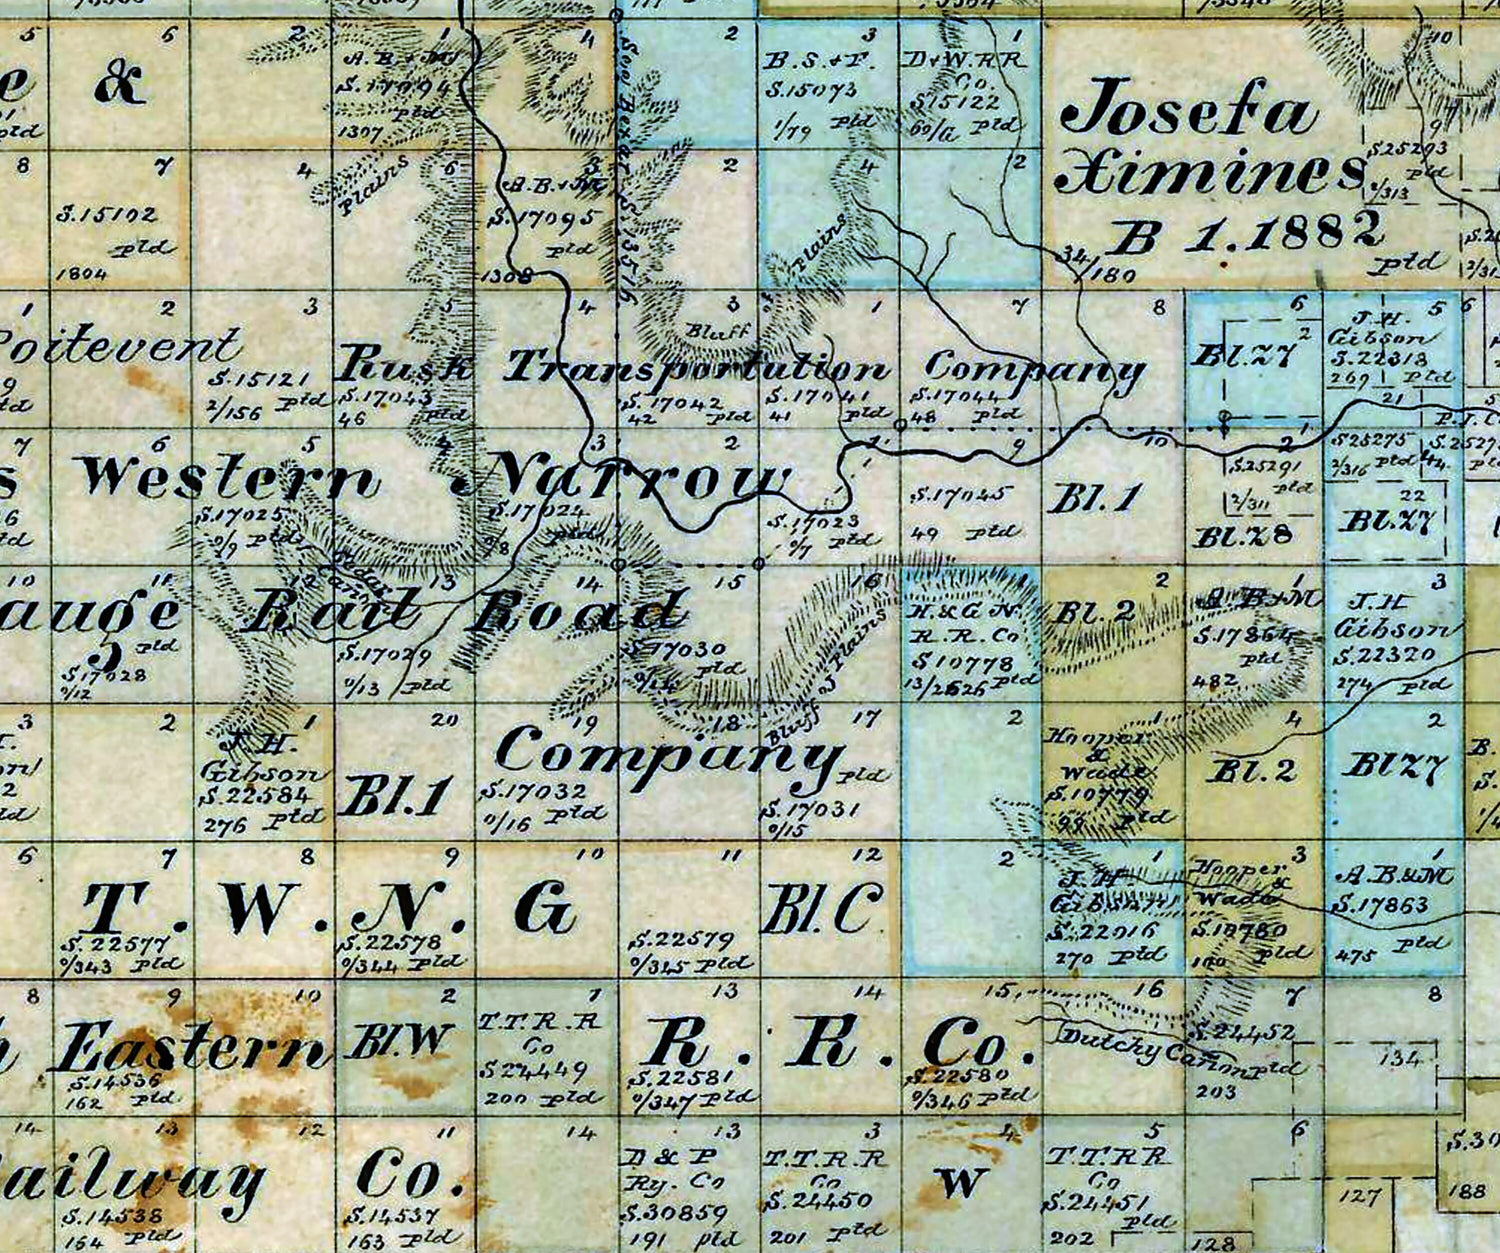 5 6 2 1 4 2 3 1 10
e &
A.B.&M
S.17094
ptd
1307
B.S.&F.
S.15073
1/79 ptd
D&W.RR
Co.
S15122
60/a ptd
Josefa
Ximines
B 1.1882
ptd
34/180
9
S25293
ptd
2/313
8 7 4 6 3 2 4 2
S.15102
ptd
1804
Plains
A.B.&M
S.17095
ptd
1308
Plains
1 2 3 5 4 3 1 7 8 6 5 6
Poitevent
S.15121
2/156 ptd
Rusk Transportation Company
S.17043
46 ptd
Bluff
S.17042
42 ptd
S.17041
41 ptd
S.17044
48 ptd
Bl.27
2
J.H.
Gibson
S.22313
269 ptd
21
7 6 5 4 3 2 1 9 10 2
s Western Narrow
S.17025
0/9 ptd
S.17024
0/8 ptd
S.17023
0/7 ptd
S.17045
49 ptd
Bl.1
S.25291
ptd
2/311
Bl.28
S25275
2/316 ptd
22
Bl.27
Cedar
Canon
10 11 12 13 14 15 16 1 2 1 3
auge Rail Road
ptd
S17028
0/12
S.17029
0/13 ptd
S.17030
ptd
0/14
Bluff of Plains
H.&G.N.
R.R.Co
S10778
13/2626 ptd
Bl.2
A.B&M
S.17864
ptd
482
J.H
Gibson
S.22320
274 ptd
3 2 1 20 19 18 17 2 1 4 2
J.H.
Gibson
S.22584
276 ptd
Bl.1
Company
S.17032
0/16 ptd
ptd
S.17031
0/15
Hooper
&
Wade
S.10779
99 ptd
Bl.2
Bl27
6 7 8 9 10 11 12 2 1 3 1
T. W. N. G Bl.C
S.22577
0/343 ptd
S.22578
0/344 ptd
S.22579
0/345 ptd
J.H
Gibson
S.22016
270 ptd
Hooper
&
Wade
S.10780
100 ptd
A.B&M
S.17863
475 ptd
8 9 10 2 1 13 14 15 16 7 8
h Eastern
S.14536
162 ptd
Bl.W
T.T.R.R
Co
S24449
200 ptd
R. R. Co.
S.22581
0/347 ptd
S.22580
0/346 ptd
Dutchy Canon
S.24452
ptd
203
134
14 13 12 11 14 13 3 4 5 6
ailway Co.
S.14538
164 ptd
S.14537
163 ptd
D & P
Ry. Co
S.30859
191 ptd
T.T.R.R
Co
S.24450
201 ptd
W
T.T.RR
Co
S.24451
ptd
202
128
127
S.30
188